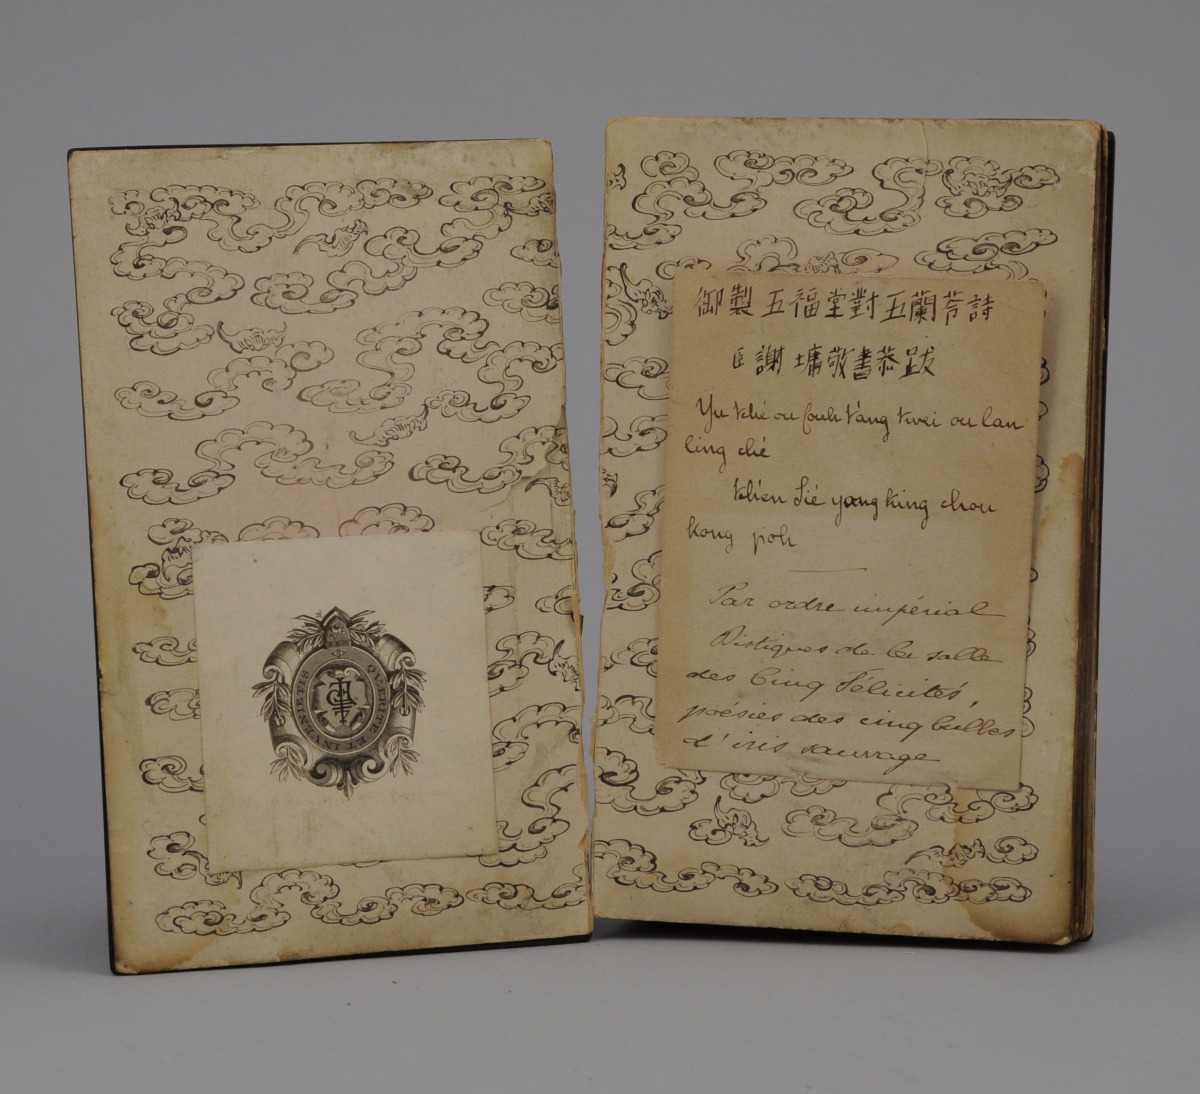 QVÆRITE ET INVENIETIS
御製五福堂對五蘭苓詩
臣謝墉敬書恭跋
Yu tché ou fouh t'ang twei ou lan
ling ché
tchen Sié yong king chou
kong poh
Par ordre impérial
Distiques de la salle
des Cinq Félicités,
poésies des cinq bulbes
d'iris sauvage